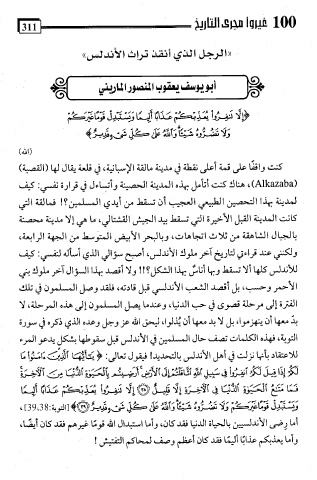 100 غيروا مجرى التاريخ
311
«الرجل الذي أنقذ تراث الأندلس»
أبو يوسف يعقوب المنصور الماريني
﴿إِلَّا تَنفِرُوا يُعَذِّبْكُمْ عَذَابًا أَلِيمًا وَيَسْتَبْدِلْ قَوْمًا غَيْرَكُمْ
وَلَا تَضُرُّوهُ شَيْئًا وَاللَّهُ عَلَىٰ كُلِّ شَيْءٍ قَدِيرٌ﴾
(الله)
كنت واقفًا على قمة أعلى نقطة في مدينة مالقة الإسبانية، في قلعة يقال لها (القصبة)
(Alkazaba)، هناك كنت أتأمل بهذه المدينة الحصينة وأتساءل في قرارة نفسي: كيف
لمدينة بهذا التحصين الطبيعي العجيب أن تسقط من أيدي المسلمين؟! فمالقة التي
كانت المدينة القبل الأخيرة التي تسقط بيد الجيش القشتالي، ما هي إلا مدينة محصنة
بالجبال الشاهقة من ثلاث اتجاهات، وبالبحر الأبيض المتوسط من الجهة الرابعة،
ولكنني عند قراءتي لتاريخ آخر ملوك الأندلس، أصبح سؤالي الذي أسأله لنفسي: كيف
للأندلس كلها ألا تسقط وبها أناسٌ بهذا الشكل؟!! ولا أقصد بهذا السؤال آخر ملوك بني
الأحمر وحسب، بل أقصد الشعب الأندلسي قبل قادته، فقد وصل المسلمون في تلك
الفترة إلى مرحلة قصوى في حب الدنيا، وعندما يصل المسلمون إلى هذه المرحلة، لا
بدّ معها أن ينهزموا، بل لا بد معها أن يُذلوا، ليحق الله عز وجل وعده الذي ذكره في سورة
التوبة، فهذه الكلمات تصف حال المسلمين في الأندلس قبل سقوطها بشكل يدعو المرء
للاعتقاد بأنها نزلت في أهل الأندلس بالتحديد! فيقول تعالى: ﴿يَا أَيُّهَا الَّذِينَ آمَنُوا مَا
لَكُمْ إِذَا قِيلَ لَكُمُ انفِرُوا فِي سَبِيلِ اللَّهِ اثَّاقَلْتُمْ إِلَى الْأَرْضِ أَرَضِيتُم بِالْحَيَاةِ الدُّنْيَا مِنَ الْآخِرَةِ
فَمَا مَتَاعُ الْحَيَاةِ الدُّنْيَا فِي الْآخِرَةِ إِلَّا قَلِيلٌ (38) إِلَّا تَنفِرُوا يُعَذِّبْكُمْ عَذَابًا أَلِيمًا
وَيَسْتَبْدِلْ قَوْمًا غَيْرَكُمْ وَلَا تَضُرُّوهُ شَيْئًا وَاللَّهُ عَلَىٰ كُلِّ شَيْءٍ قَدِيرٌ (39)﴾ [التوبة:39،38]،
أما رضى الأندلسيين بالحياة الدنيا فقد كان، وأما استبدال الله قومًا غيرهم فقد كان أيضًا،
وأما يعذبكم عذابًا أليمًا فقد كان أعظم وصف لمحاكم التفتيش !